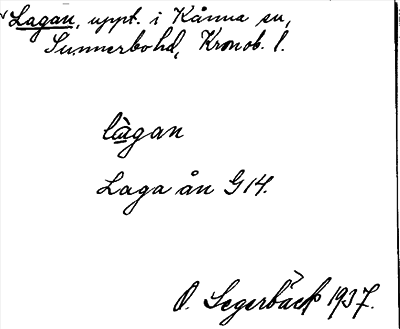 Lagan, uppt. i Kånna sn,
Sunnerbohd, Kronob. l.
làgan
Laga ån G14.
O. Segerbäck 1937.